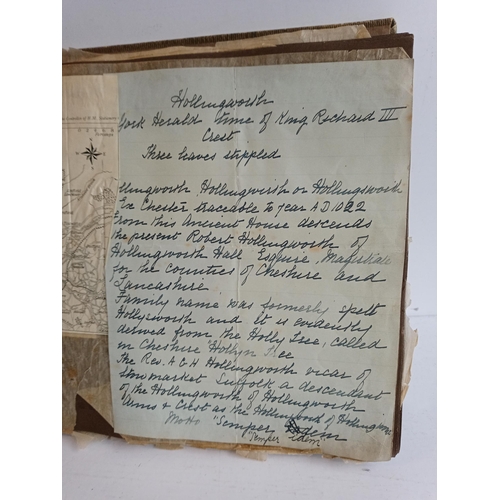 Hollingworth
York Herald time of King Richard III
Crest
Three leaves stippled
llingworth Hollingwirth or Hollingsworth
Ex Chester traceable to year A D 1022
From this Ancient House descends
the present Robert Hollingworth of
Hollingworth Hall Esquire, Magistrate
for the Counties of Cheshire and
Lancashire
Family name was formerly spelt
Hollynworth and it is evidently
derived from the Holly Tree, called
in Cheshire Hollyn Tree
the Rev. A G H Hollingworth vicar of
Stowmarket Suffolk a descendant
of the Hollingworth of Hollingworth
Arms & Crest as the Hollingworth of Hollingworth
Motto "Semper Idem
Semper idem